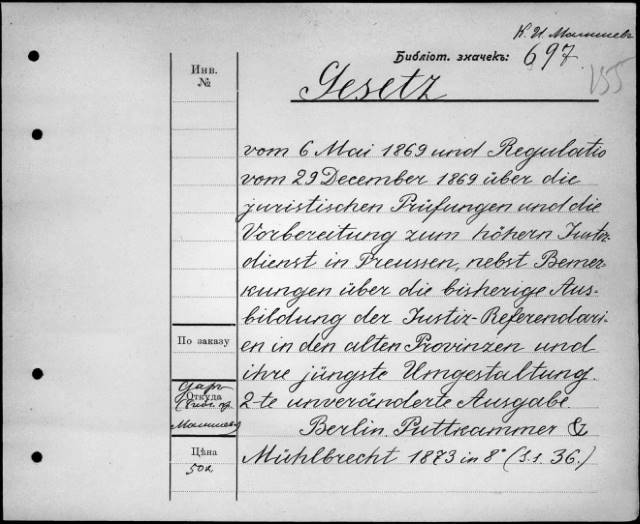 К. И. Малышевъ
Библіот. значекъ: 697.
155
Инв.
№
Gesetz
vom 6 Mai 1869 und Regulativ
vom 29 December 1869 über die
juristischen Prüfungen und die
Vorbereitung zum höhern Justiz-
dienst in Preussen, nebst Bemer-
kungen über die bisherige Aus-
bildung der Justiz-Referendari-
en in den alten Provinzen und
ihre jüngste Umgestaltung.
2-te unveränderte Ausgabe.
Berlin. Puttkammer &
Mühlbrecht 1873 in 8° (S.s. 36.)
По заказу
Даръ
Откуда
Малышева
Цѣна
50к